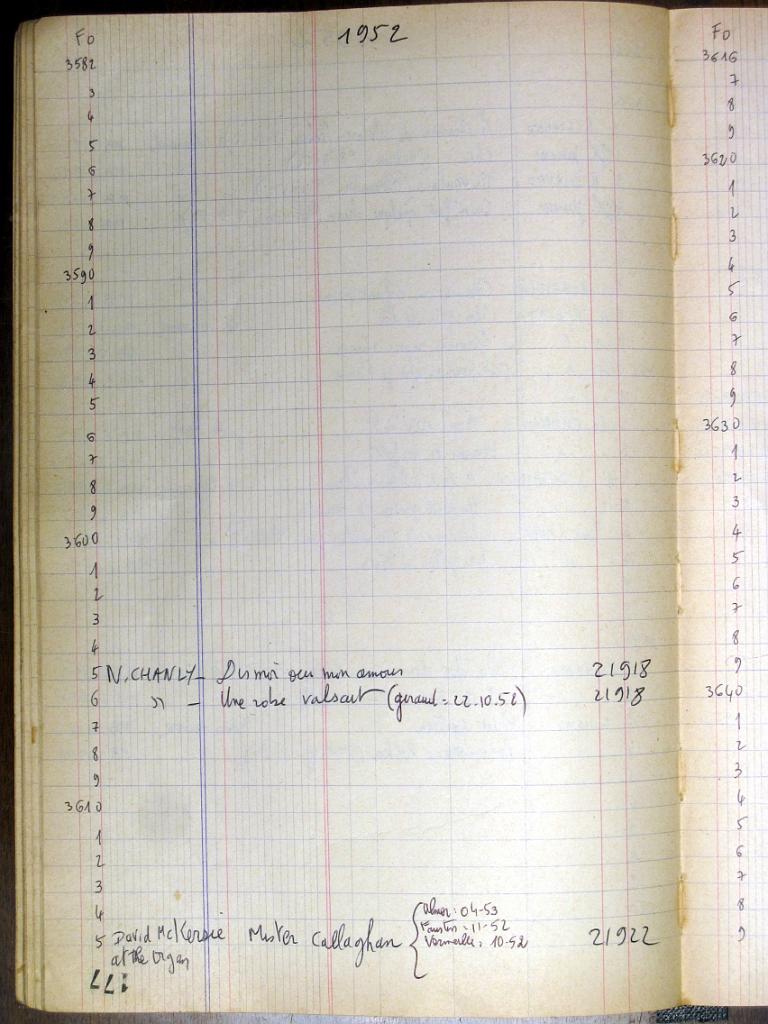 Fo 1952
3582
3
4
5
6
7
8
9
3590
1
2
3
4
5
6
7
8
9
3600
1
2
3
4
5 N. CHANLY - Dis moi oui mon amour 21918
6 " - Une robe valsait (geraud = 22.10.52) 21918
7
8
9
3610
1
2
3
4
5 David McKersie Mister Callaghan { : 04-53 21922
at the organ Faustin : 11-52
Vermeille : 10-52
Fo
3616
7
8
9
3620
1
2
3
4
5
6
7
8
9
3630
1
2
3
4
5
6
7
8
9
3640
1
2
3
4
5
6
7
8
9